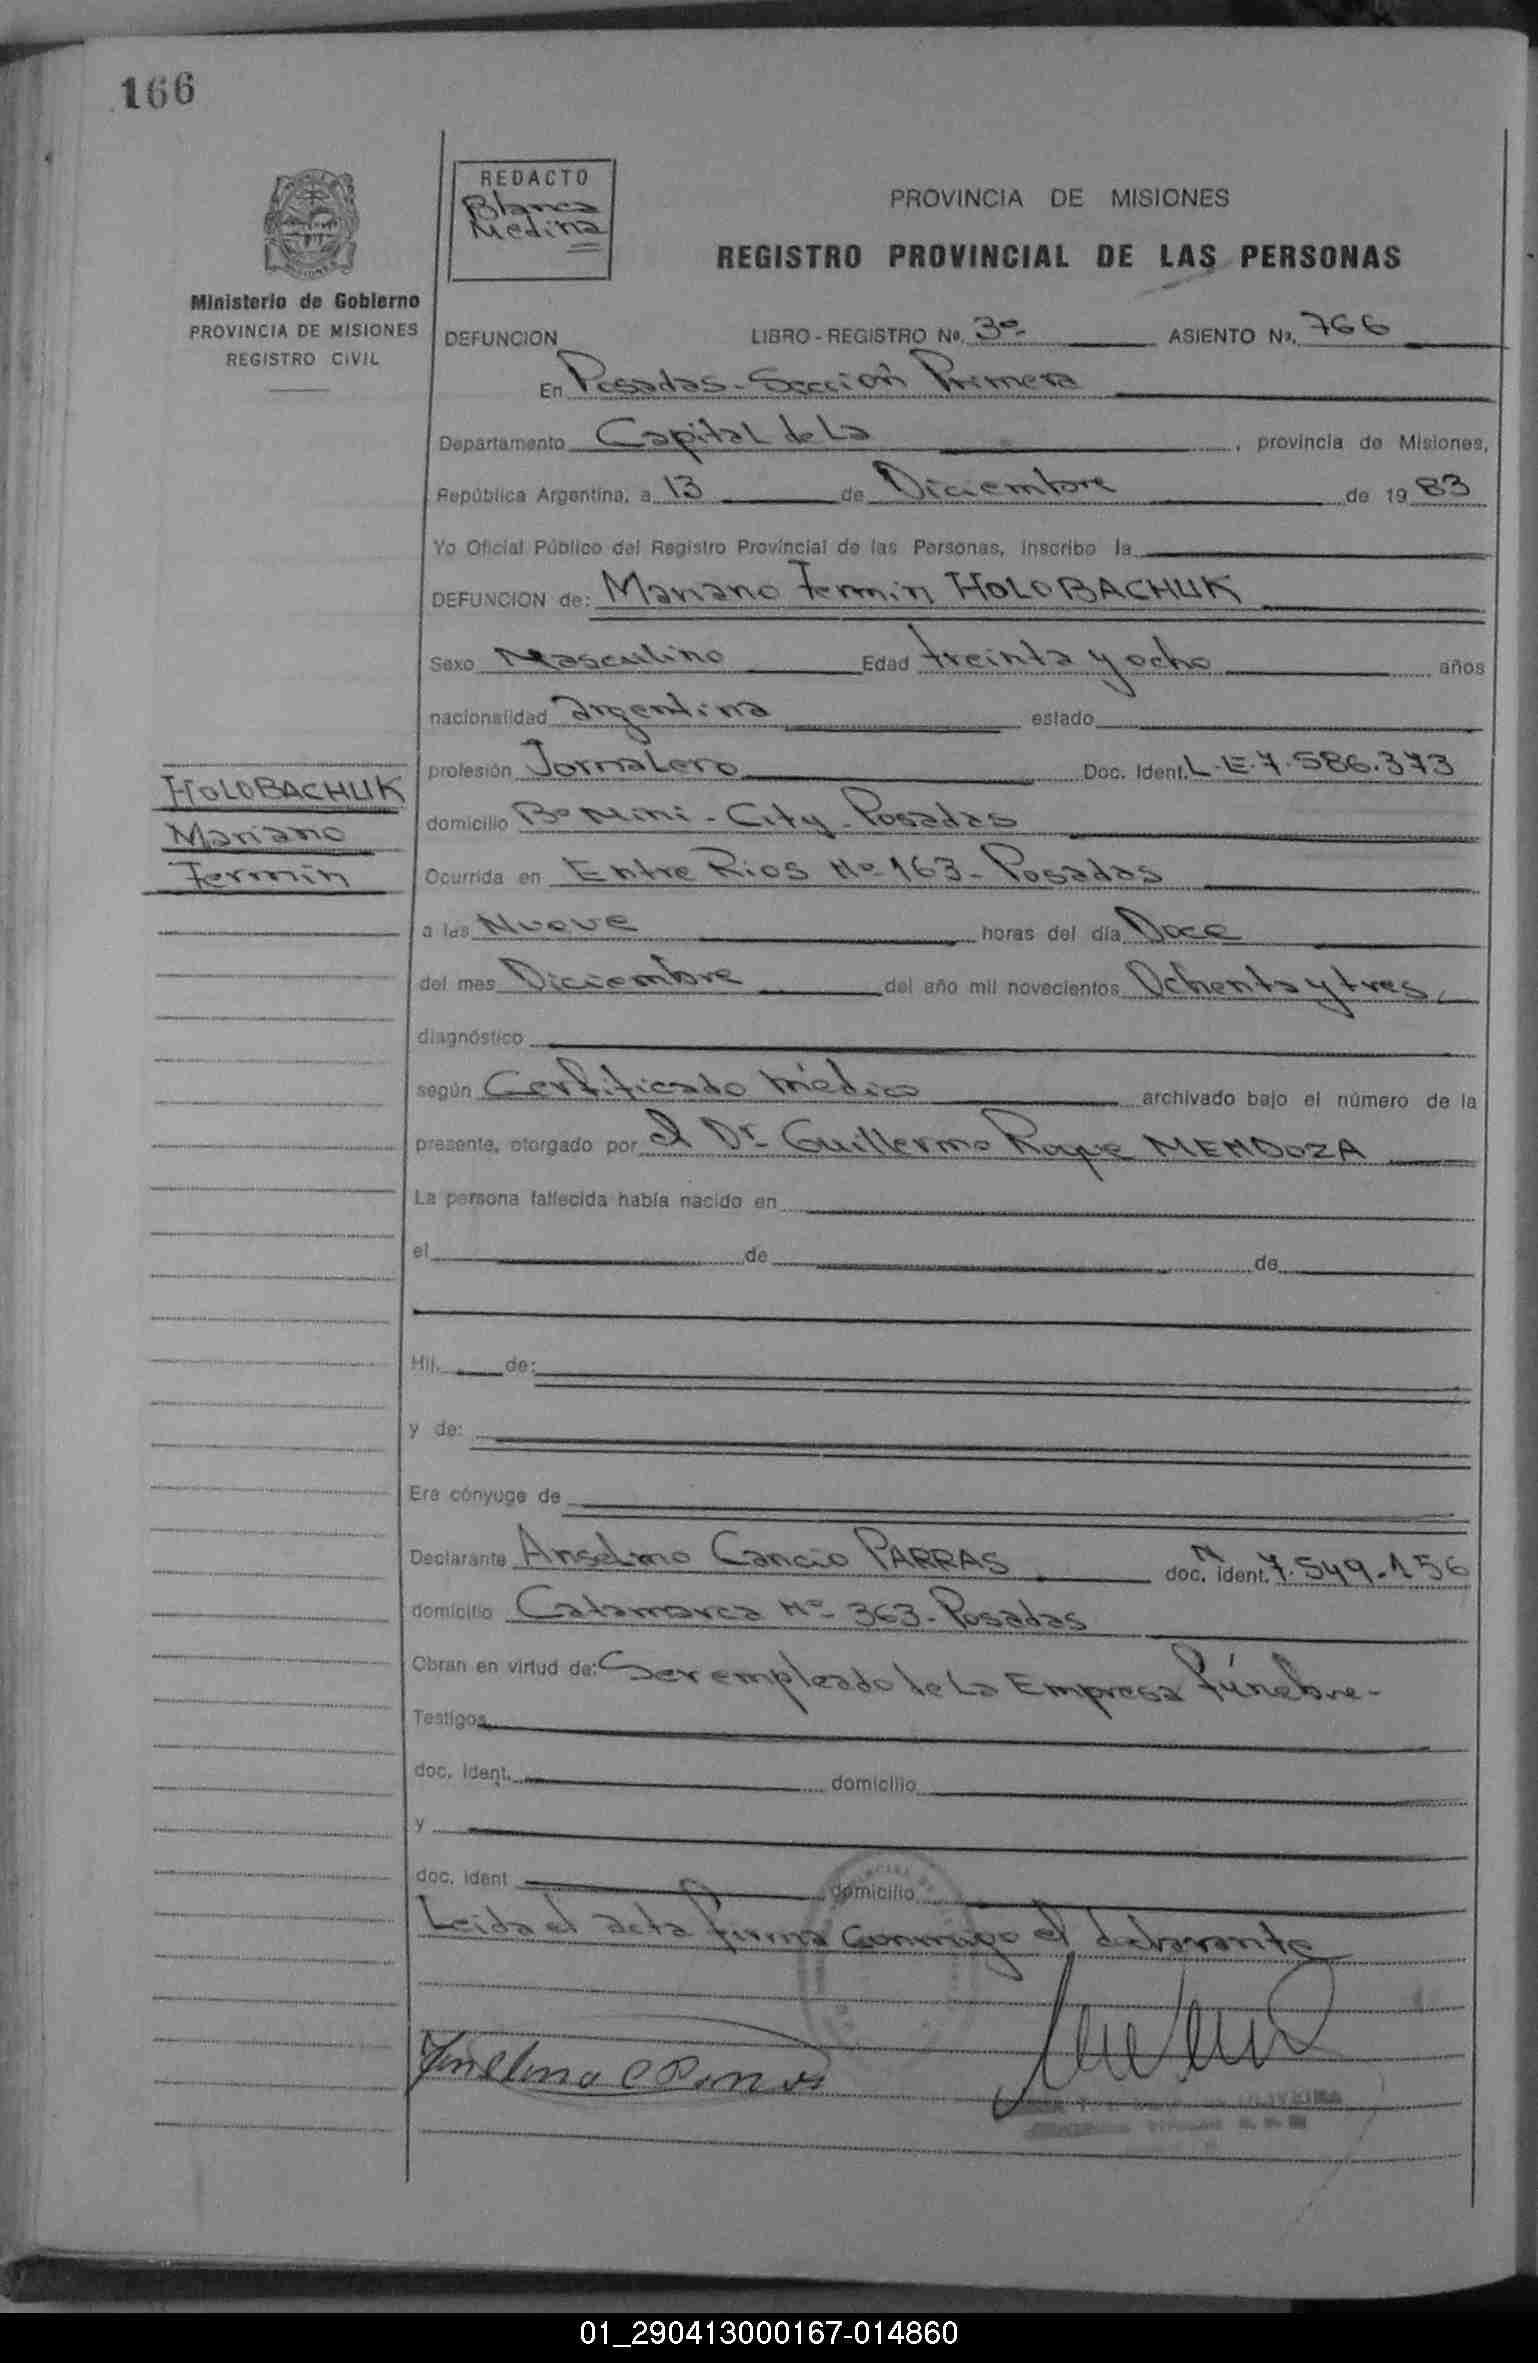 166
REDACTO
Blanca
Medina
MISIONES
Ministerio de Gobierno
PROVINCIA DE MISIONES
REGISTRO CIVIL
PROVINCIA DE MISIONES
REGISTRO PROVINCIAL DE LAS PERSONAS
DEFUNCION LIBRO-REGISTRO Nº. 3º- ASIENTO Nº. 766
En Posadas-Sección Primera
Departamento Capital de La , provincia de Misiones,
República Argentina, a 13 de Diciembre de 19 83
Yo Oficial Público del Registro Provincial de las Personas, inscribo la
DEFUNCION de: Mariano Fermin HOLOBACHUK
Sexo Masculino Edad treinta y ocho años
nacionalidad argentina estado
profesión Jornalero Doc. Ident. L.E.7.586.373
domicilio Bº Mini-City-Posadas
Ocurrida en Entre Rios Nº 163-Posadas
a las Nueve horas del día Doce
del mes Diciembre del año mil novecientos Ochenta y tres
diagnóstico
según Certificado médico archivado bajo el número de la
presente, otorgado por el Dr. Guillermo Roque MENDOZA
La persona fallecida había nacido en
el de de
Hij. de:
y de:
Era cónyuge de
Declarante Anselmo Cancio PARRAS doc. ident. M 7.549.156
domicilio Catamarca Nº 363-Posadas
Obran en virtud de: Ser empleado de La Empresa fúnebre-
Testigos
doc. ident. domicilio
y
doc. ident domicilio
Leida el acta firma conmigo el declarante
HOLOBACHUK
Mariano
Fermin
Anselmo C Parras
OLIVEIRA
01_290413000167-014860